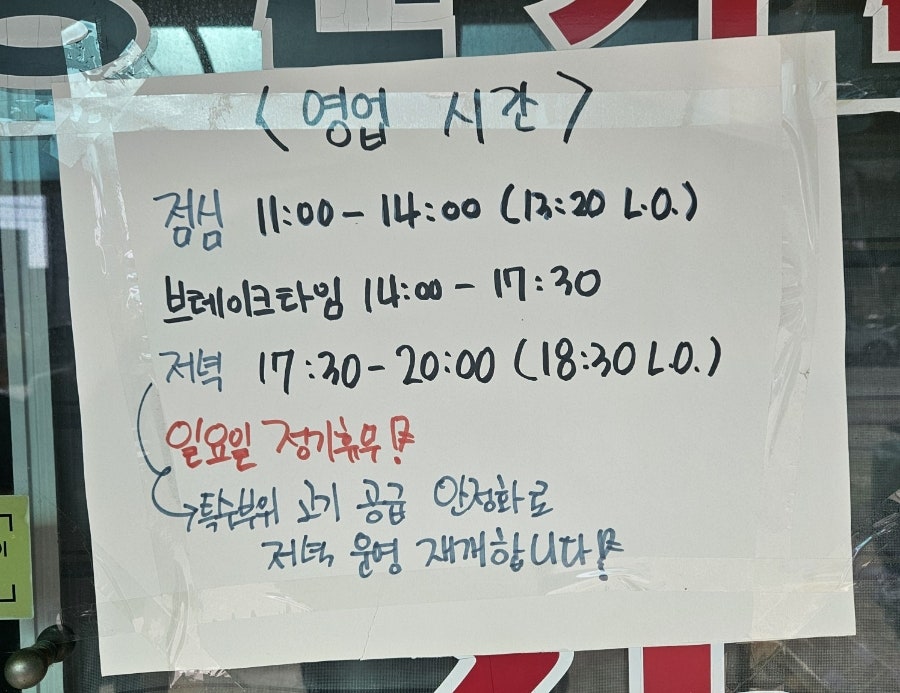 < 영업 시간 >
점심 11:00 - 14:00 (13:20 L.O.)
브레이크타임 14:00 - 17:30
저녁 17:30 - 20:00 (18:30 L.O.)
일요일 정기휴무!
→특수부위 고기 공급 안정화로
저녁 운영 재개합니다!